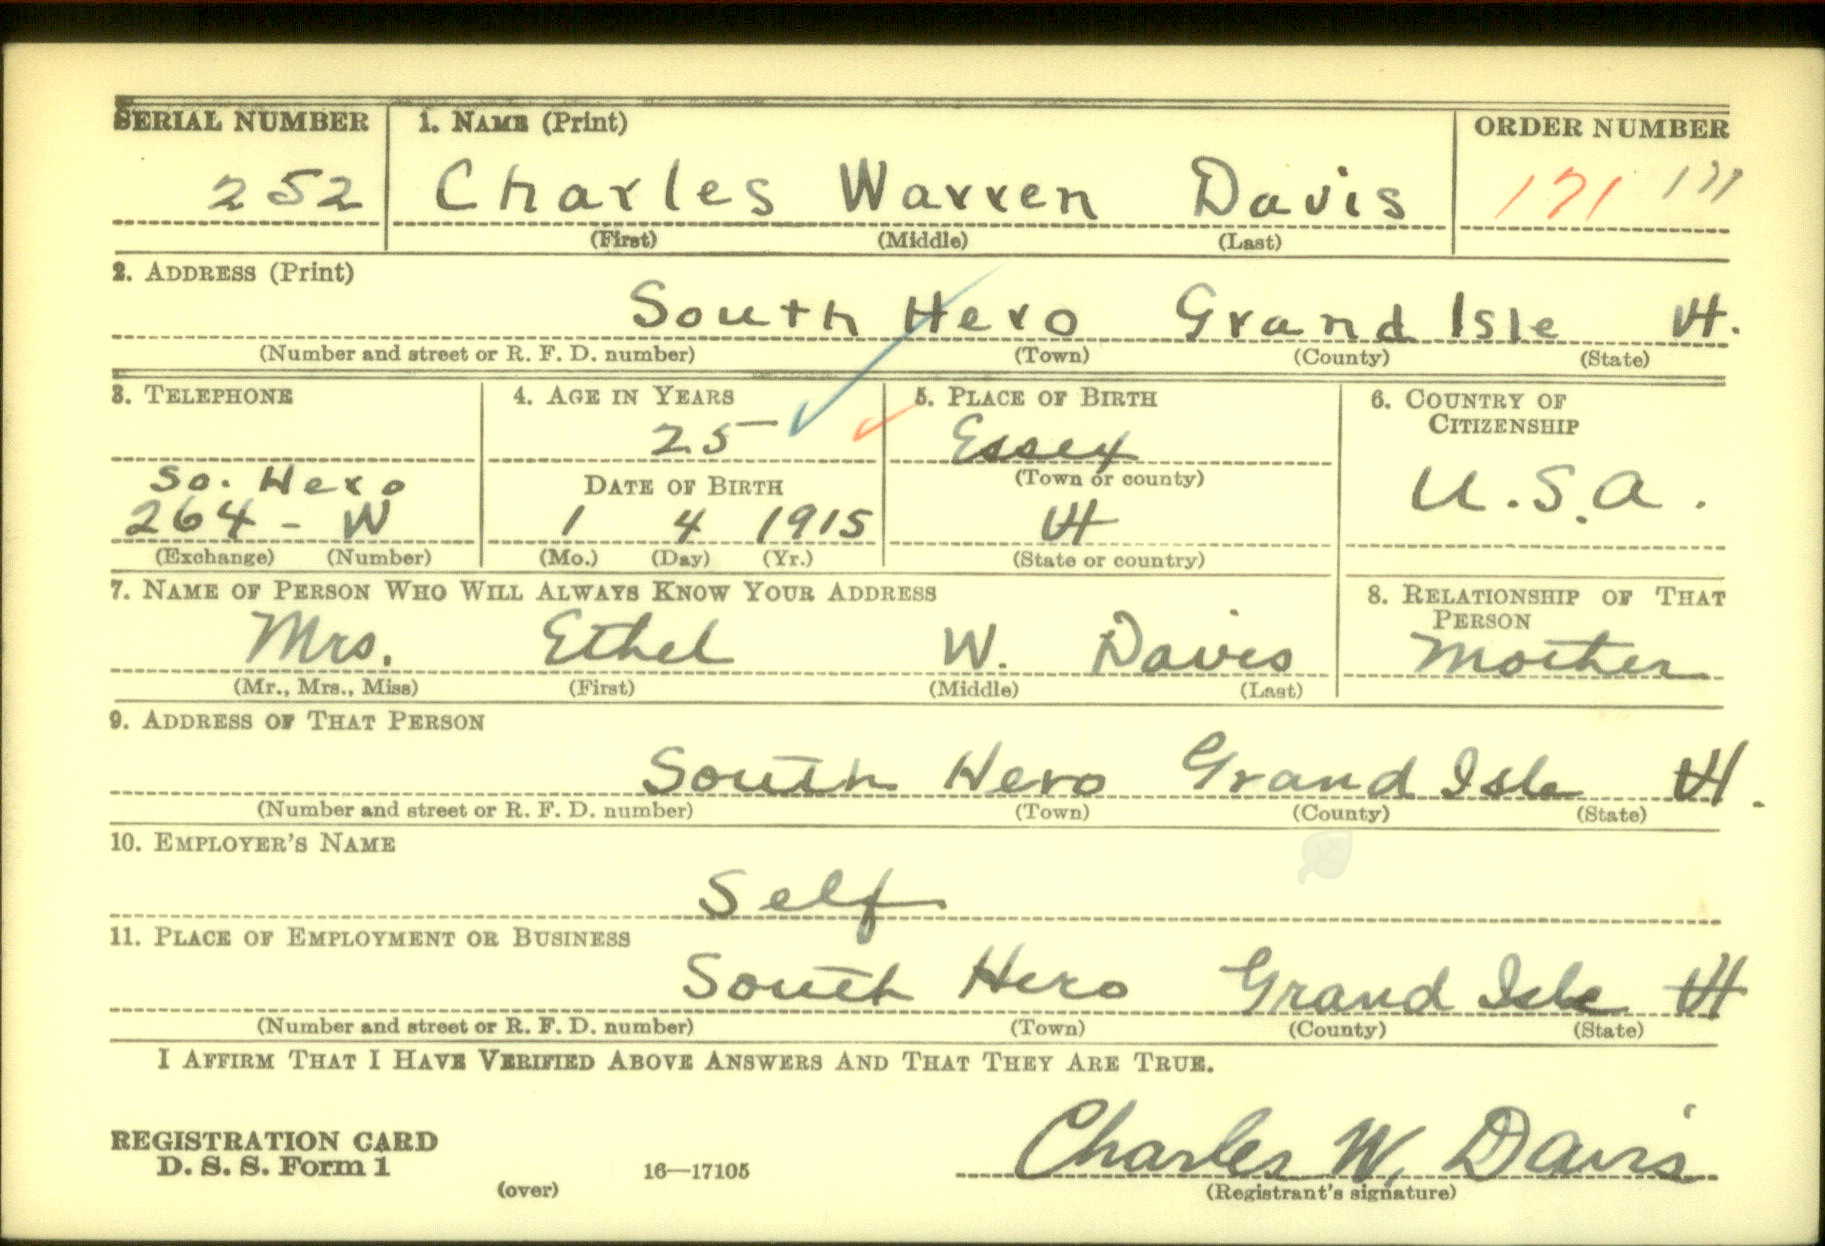 SERIAL NUMBER 1. NAME (Print) ORDER NUMBER
252 Charles Warren Davis 171 171
(First) (Middle) (Last)
2. ADDRESS (Print)
South Hero Grand Isle Vt.
(Number and street or R. F. D. number) (Town) (County) (State)
3. TELEPHONE 4. AGE IN YEARS 5. PLACE OF BIRTH 6. COUNTRY OF
CITIZENSHIP
25 Essex
(Town or county)
So. Hero DATE OF BIRTH U.S.A.
264-W 1 4 1915 Vt
(Exchange) (Number) (Mo.) (Day) (Yr.) (State or country)
7. NAME OF PERSON WHO WILL ALWAYS KNOW YOUR ADDRESS 8. RELATIONSHIP OF THAT
PERSON
Mrs. Ethel W. Davis Mother
(Mr., Mrs., Miss) (First) (Middle) (Last)
9. ADDRESS OF THAT PERSON
South Hero Grand Isle Vt.
(Number and street or R. F. D. number) (Town) (County) (State)
10. EMPLOYER'S NAME
Self
11. PLACE OF EMPLOYMENT OR BUSINESS
South Hero Grand Isle Vt
(Number and street or R. F. D. number) (Town) (County) (State)
I AFFIRM THAT I HAVE VERIFIED ABOVE ANSWERS AND THAT THEY ARE TRUE.
REGISTRATION CARD
D. S. S. Form 1 Charles W. Davis
(over) 16—17105 (Registrant's signature)